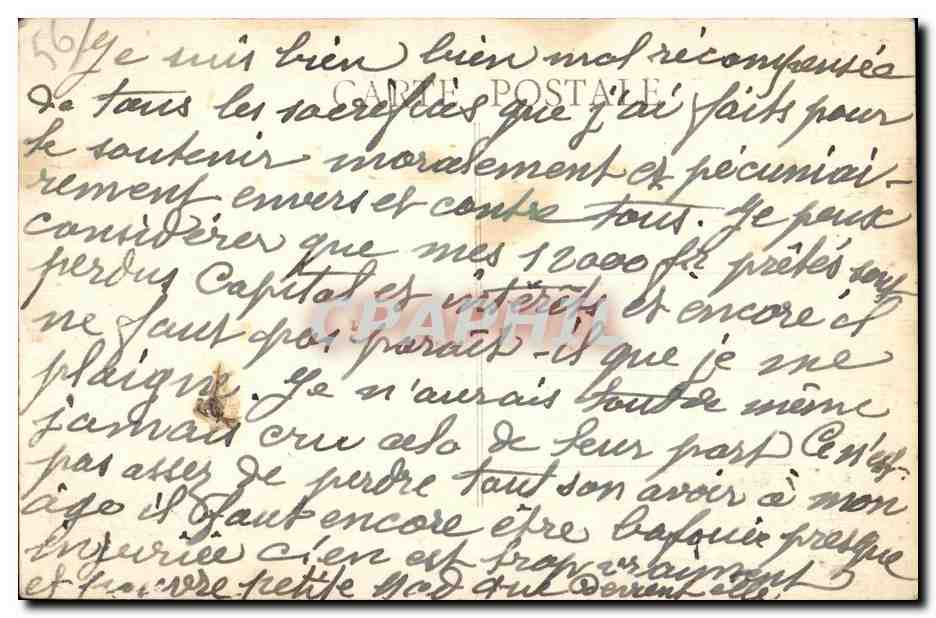 56/ Je suis bien bien mal récompensée
CARTE POSTALE
de tous les sacrifices que j'ai faits pour
le soutenir moralement et pécuniai-
rement envers et contre tous. Je peux
considérer que mes 12000 fr prêtés sont
perdus Capital et intérêts et encore il
CPAPHIL
ne faut pas paraît-il que je me
plaigne. Je n'aurais tout de même
jamais cru cela de leur part Ce n'est
pas assez de perdre tout son avoir à mon
âge il faut encore être bafouée presque
injuriée c'en est trop vraiment
et pauvre petite que devient elle